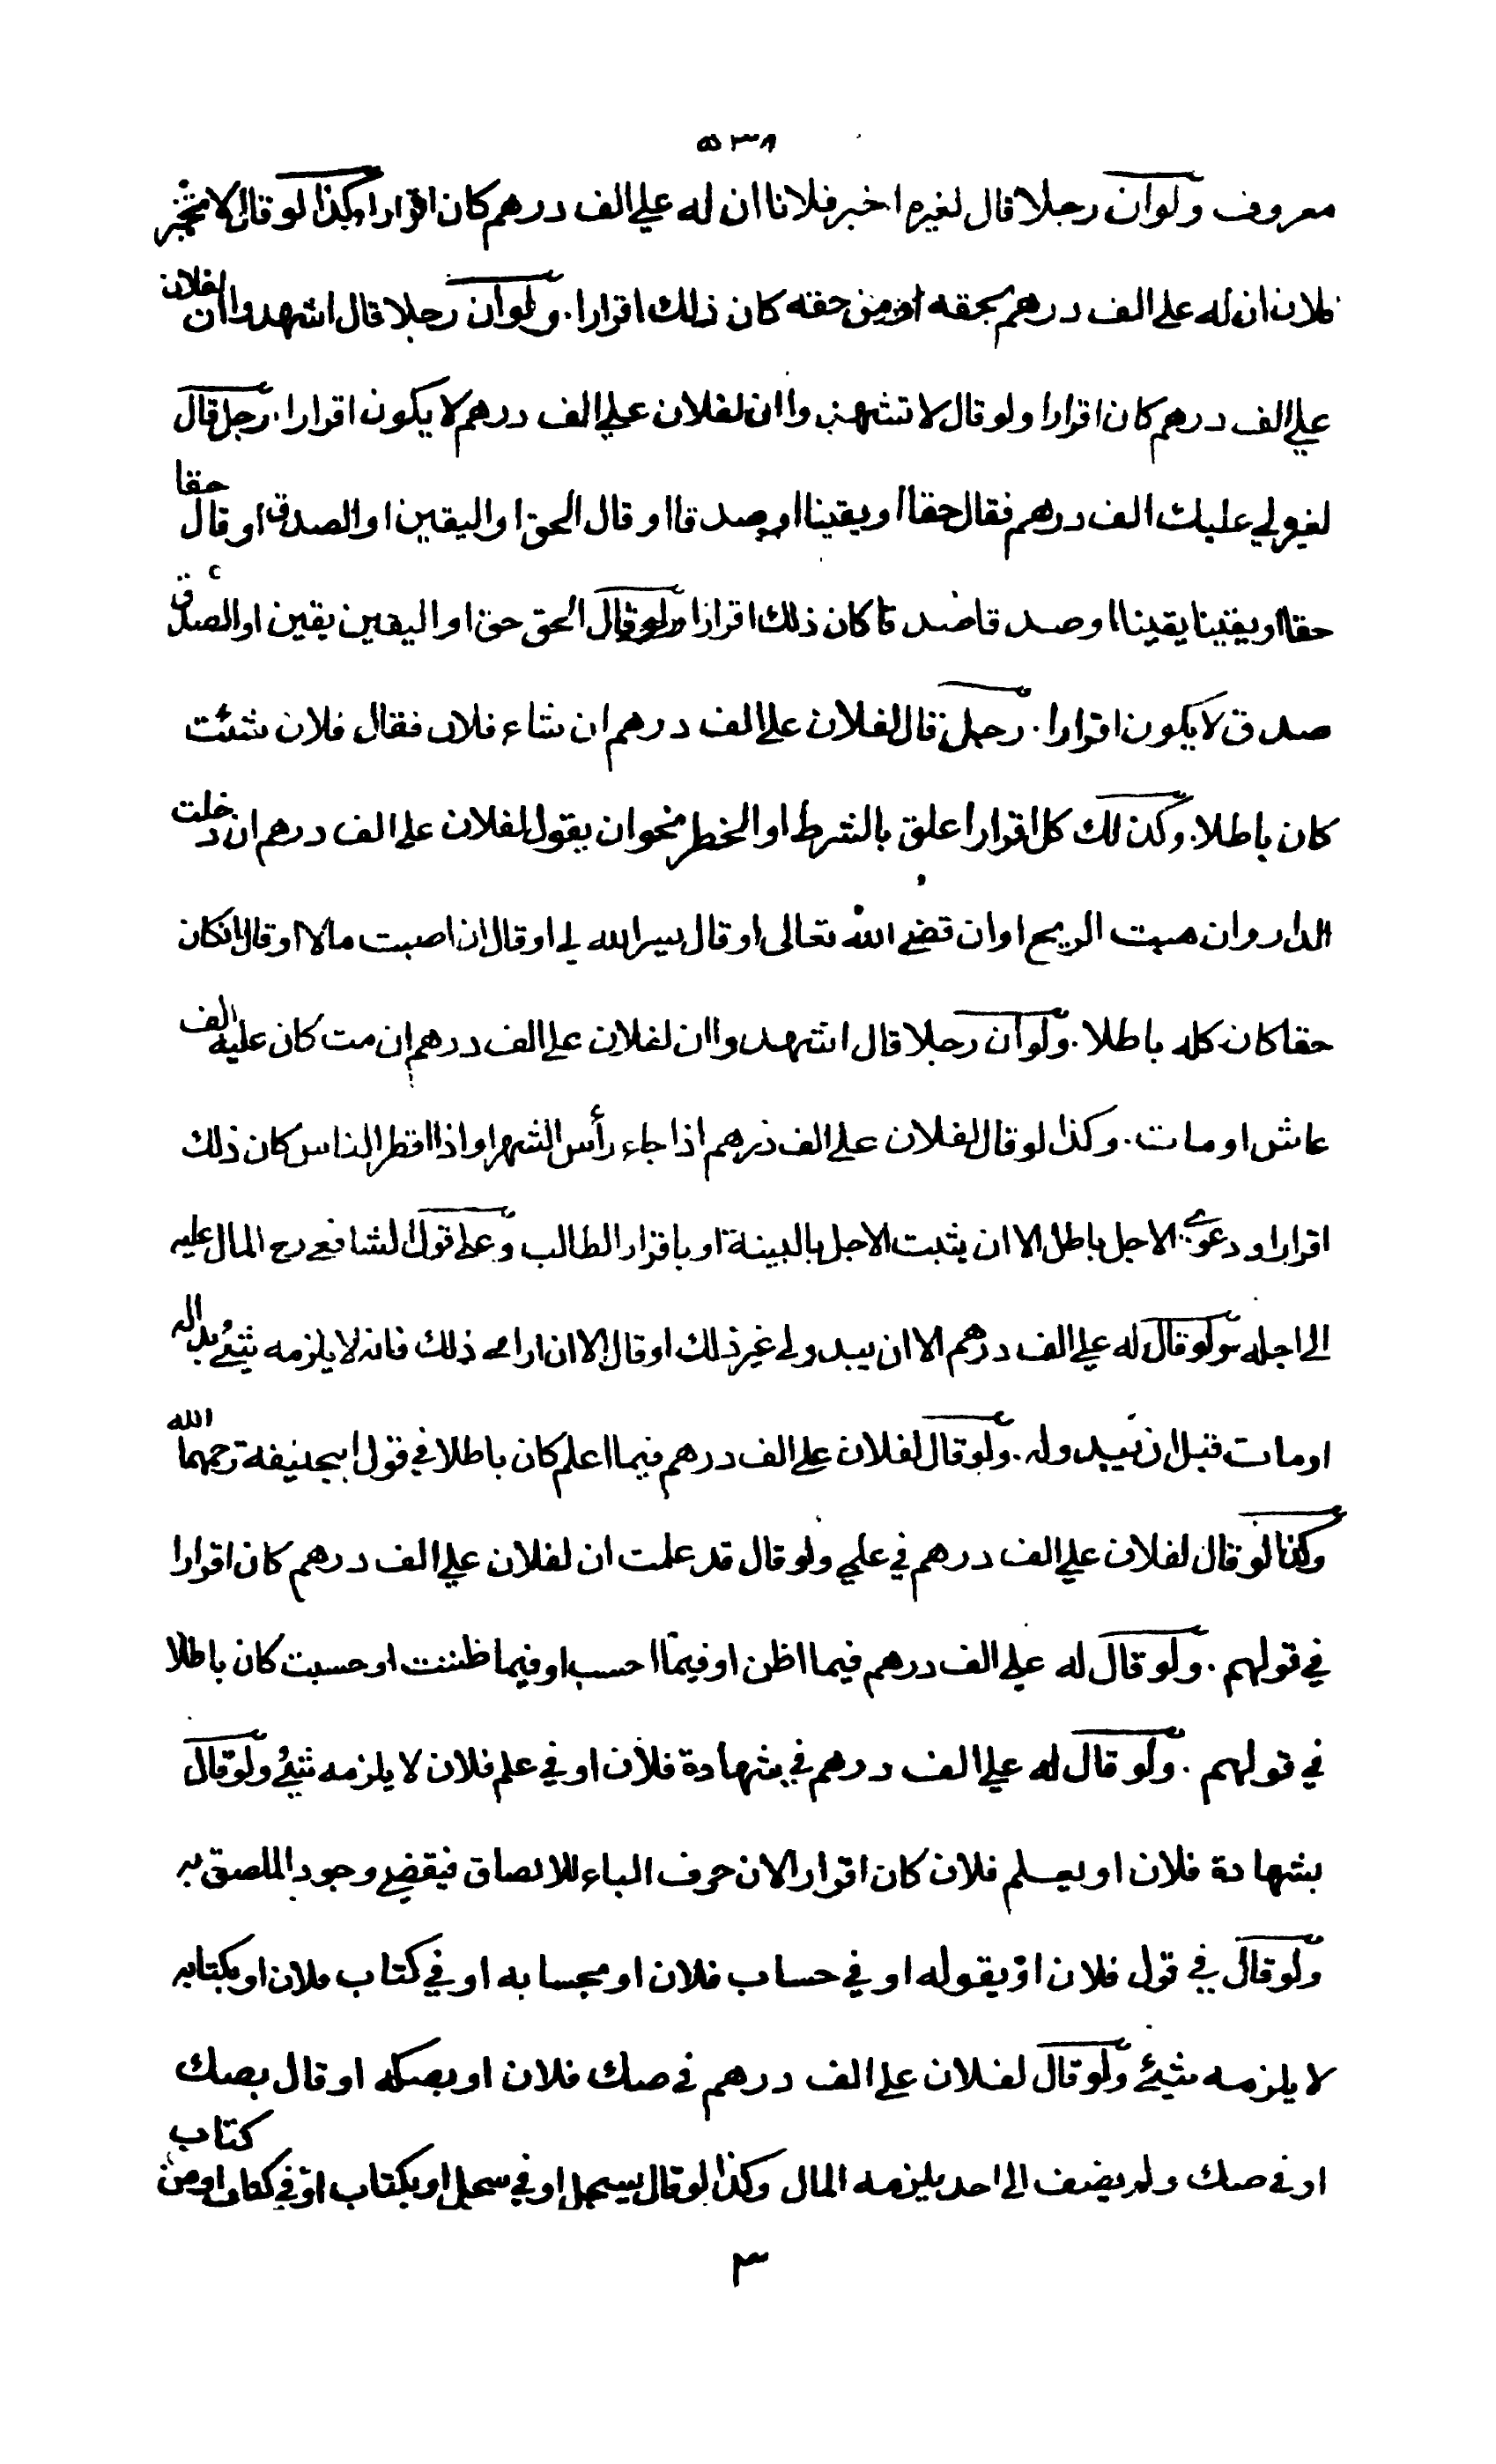 ٥٣٨
معروف ولو ان رجلا قال لغيره اخبر فلانا ان له علي الف درهم كان اقرارا وكذا لو قال الا تخبر
فلان ان له علي الف درهم بحقه او من حقه كان ذلك اقرارا . ولو ان رجلا قال اشهدوا ان لفلان
علي الف درهم كان اقرارا ولو قال لا تشهدوا ان لفلان علي الف درهم لا يكون اقرارا . رجل قال
لغيره لي عليك الف درهم فقال حقا او يقينا او صدقا او قال الحق او اليقين او الصدق او قال حقا
حقا او يقينا يقينا او صدقا صدقا كان ذلك اقرارا ولو قال الحق حق او اليقين يقين او الصدق
صدق لا يكون اقرارا . رجل قال لفلان علي الف درهم ان شاء فلان فقال فلان شئت
كان باطلا . وكذلك كل اقرار اعلق بالشرط او الخطر نحو ان يقول لفلان علي الف درهم ان دخلت
الدار وان هبت الريح او ان قضى الله تعالى او قال يسر الله لي او قال ان اصبت مالا او قال ان كان
حقا كان كله باطلا . ولو ان رجلا قال اشهدوا ان لفلان علي الف درهم ان مت كان عليه الف
عاش او مات . وكذا لو قال لفلان علي الف درهم اذا جاء رأس الشهر او اذا افطر الناس كان ذلك
اقرارا و دعوى الاجل باطل الا ان يثبت الاجل بالبينة او باقرار الطالب وعلى قول الشافعي رح المال عليه
الى اجله ولو قال له علي الف درهم الا ان يبدو لي غير ذلك او قال الا ان ارى ذلك فانه لا يلزمه شيء بدا له
او مات قبل ان يبدو له . ولو قال لفلان علي الف درهم فيما اعلم كان باطلا في قول ابي حنيفة رحمهما الله
وكذا لو قال لفلان علي الف درهم في علمي ولو قال قد علمت ان لفلان علي الف درهم كان اقرارا
في قولهم . ولو قال له علي الف درهم فيما اظن او فيما احسب او فيما ظننت او حسبت كان باطلا
في قولهم . ولو قال له علي الف درهم في شهادة فلان او في علم فلان لا يلزمه شيء ولو قال
بشهادة فلان او بعلم فلان كان اقرارا لان حرف الباء للالصاق فيقضي وجود الملصق به
ولو قال في قول فلان او بقوله او في حساب فلان او بحسابه او في كتاب فلان او بكتابه
لا يلزمه شيء ولو قال لفلان علي الف درهم في صك فلان او بصكه او قال بصك
او في صك ولم يضف الى احد يلزمه المال وكذا لو قال بسجل او في سجل او بكتاب او في كتاب او من كتاب
٣